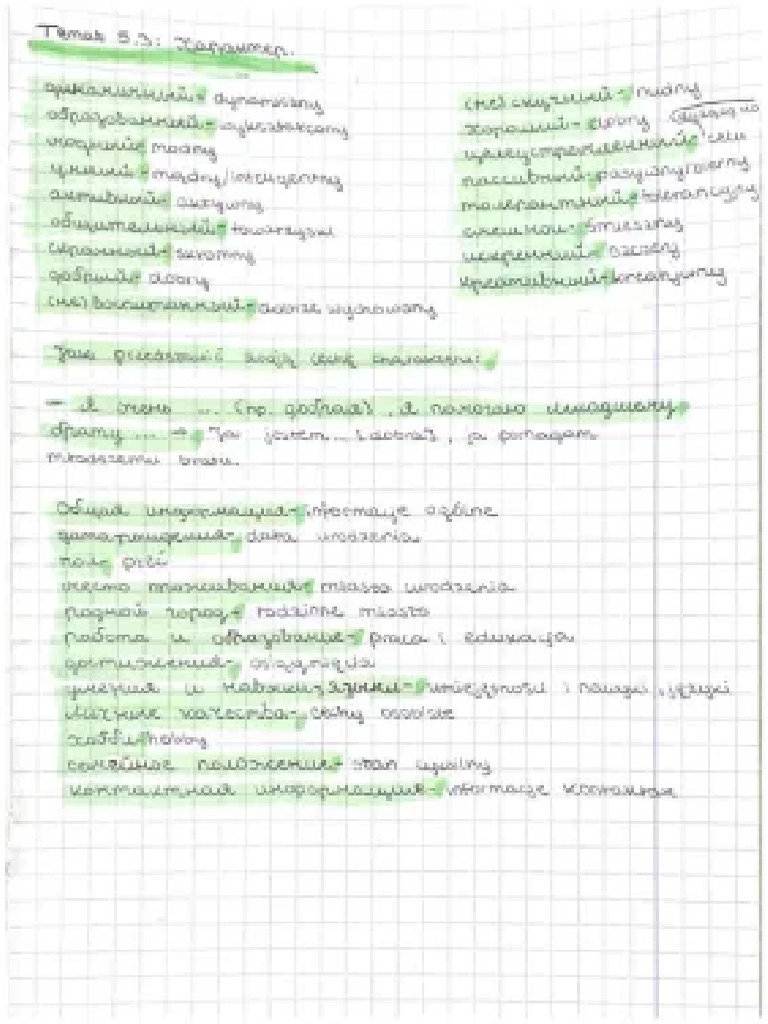 Тема 5.3: Характер.
динамичный - dynamiczny
образованный - wykształcony
модный - modny
умный - mądry/inteligentny
активный - aktywny
общительный - towarzyski
скромный - skromny
добрый - dobry
(не) воспитанный - dobrze wychowany
(не) скучный - nudny
хороший - dobry
целеустремленный - celu
пассивный - pasywny
толерантный - tolerancyjny
смешной - śmieszny
искренний - szczery
креативный - kreatywny
Jak określić swoją cechę charakteru:
- Я очень ... (np. добрая), я помогаю младшему
брату ... → Ja jestem ... (dobra), ja pomagam
młodszemu bratu.
Общая информация - informacje ogólne
дата рождения - data urodzenia
пол - płeć
место проживания - miasto urodzenia
родной город - rodzinne miasto
работа и образование - praca i edukacja
достижения - osiągnięcia
умения и навыки, языки - umiejętności i nauyki, języki
личные качества - cechy osobiste
хобби - hobby
семейное положение - stan cywilny
контактная информация - informacje kontaktowe